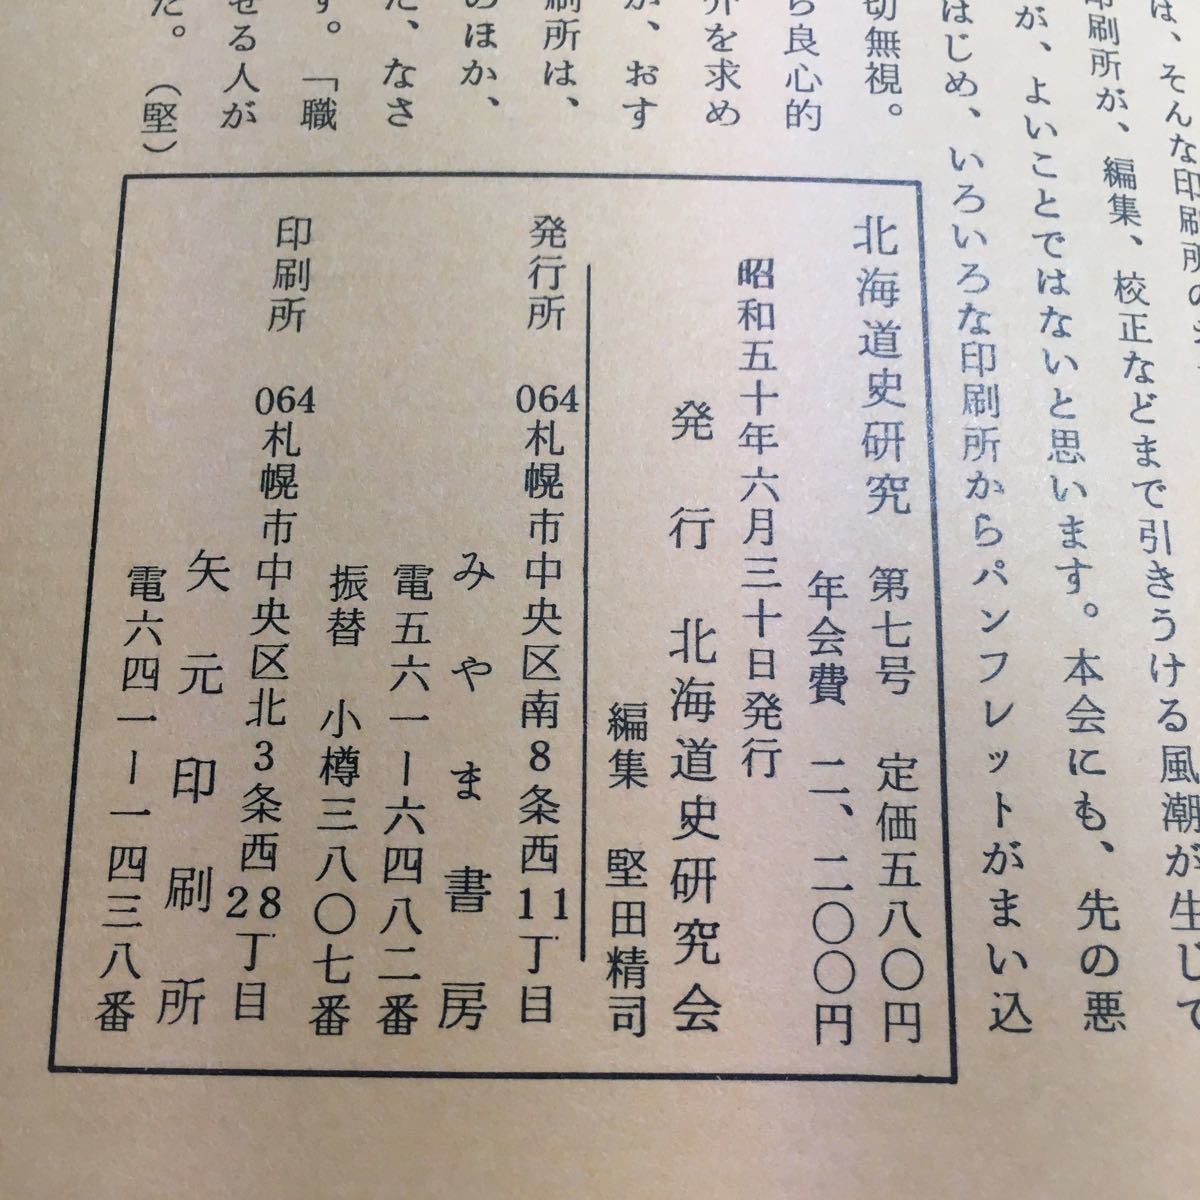 は、そんな印刷所の
印刷所が、編集、校正などまで引きうける風潮が生じて
が、よいことではないと思います。本会にも、先の悪
はじめ、いろいろな印刷所からパンフレットがまい込
切無視。
ら良心的
介を求め
が、おす
刷所は、
のほか、
た、なさ
す。「職
せる人が
た。(堅)
北海道史研究 第七号 定価五八〇円
年会費 二、二〇〇円
昭和五十年六月三十日発行
発行 北海道史研究会
編集 堅田精司
発行所 064札幌市中央区南8条西11丁目
みやま書房
電五六一―六四八二番
振替 小樽三八〇七番
印刷所 064札幌市中央区北3条西28丁目
矢元印刷所
電六四一―一四三八番